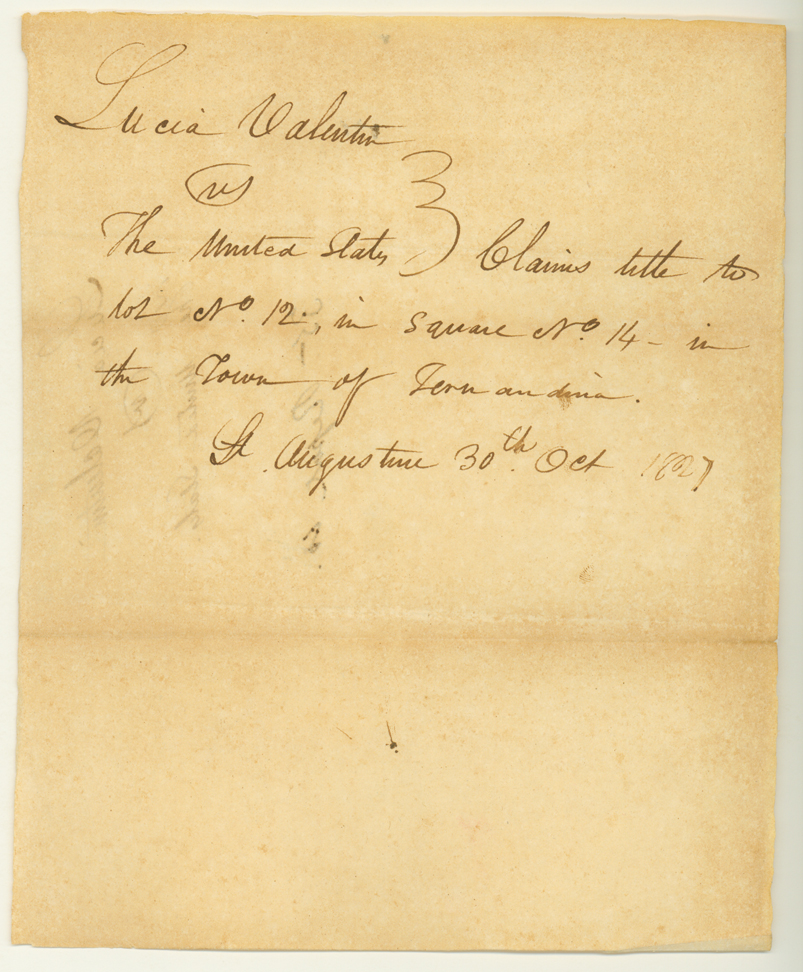 Lucia Valentin
vs
The United States } Claims title to
lot No. 12, in Square No. 14 - in
the Town of Fernandina.
St. Augustine 30th Oct 1827